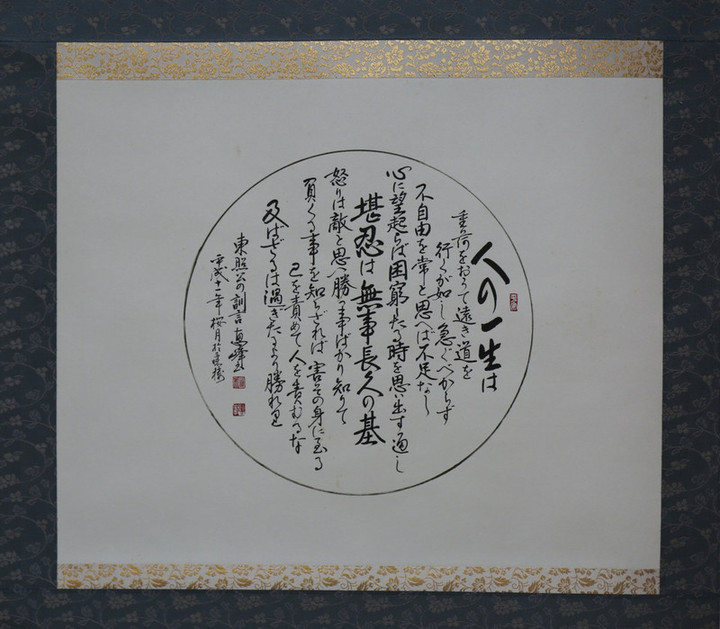 人の一生は
重荷をおうて遠き道を
行くが如し急ぐべからず
不自由を常と思へば不足なし
心に望起らば困窮したる時を思い出す可し
堪忍は無事長久の基
怒りは敵と思へ勝つ事ばかり知りて
負くる事を知らざれば害その身に至る
己を責めて人を責むるな
及ばざるは過ぎたるより勝れり
東照公の訓言
平成十一年桜月於